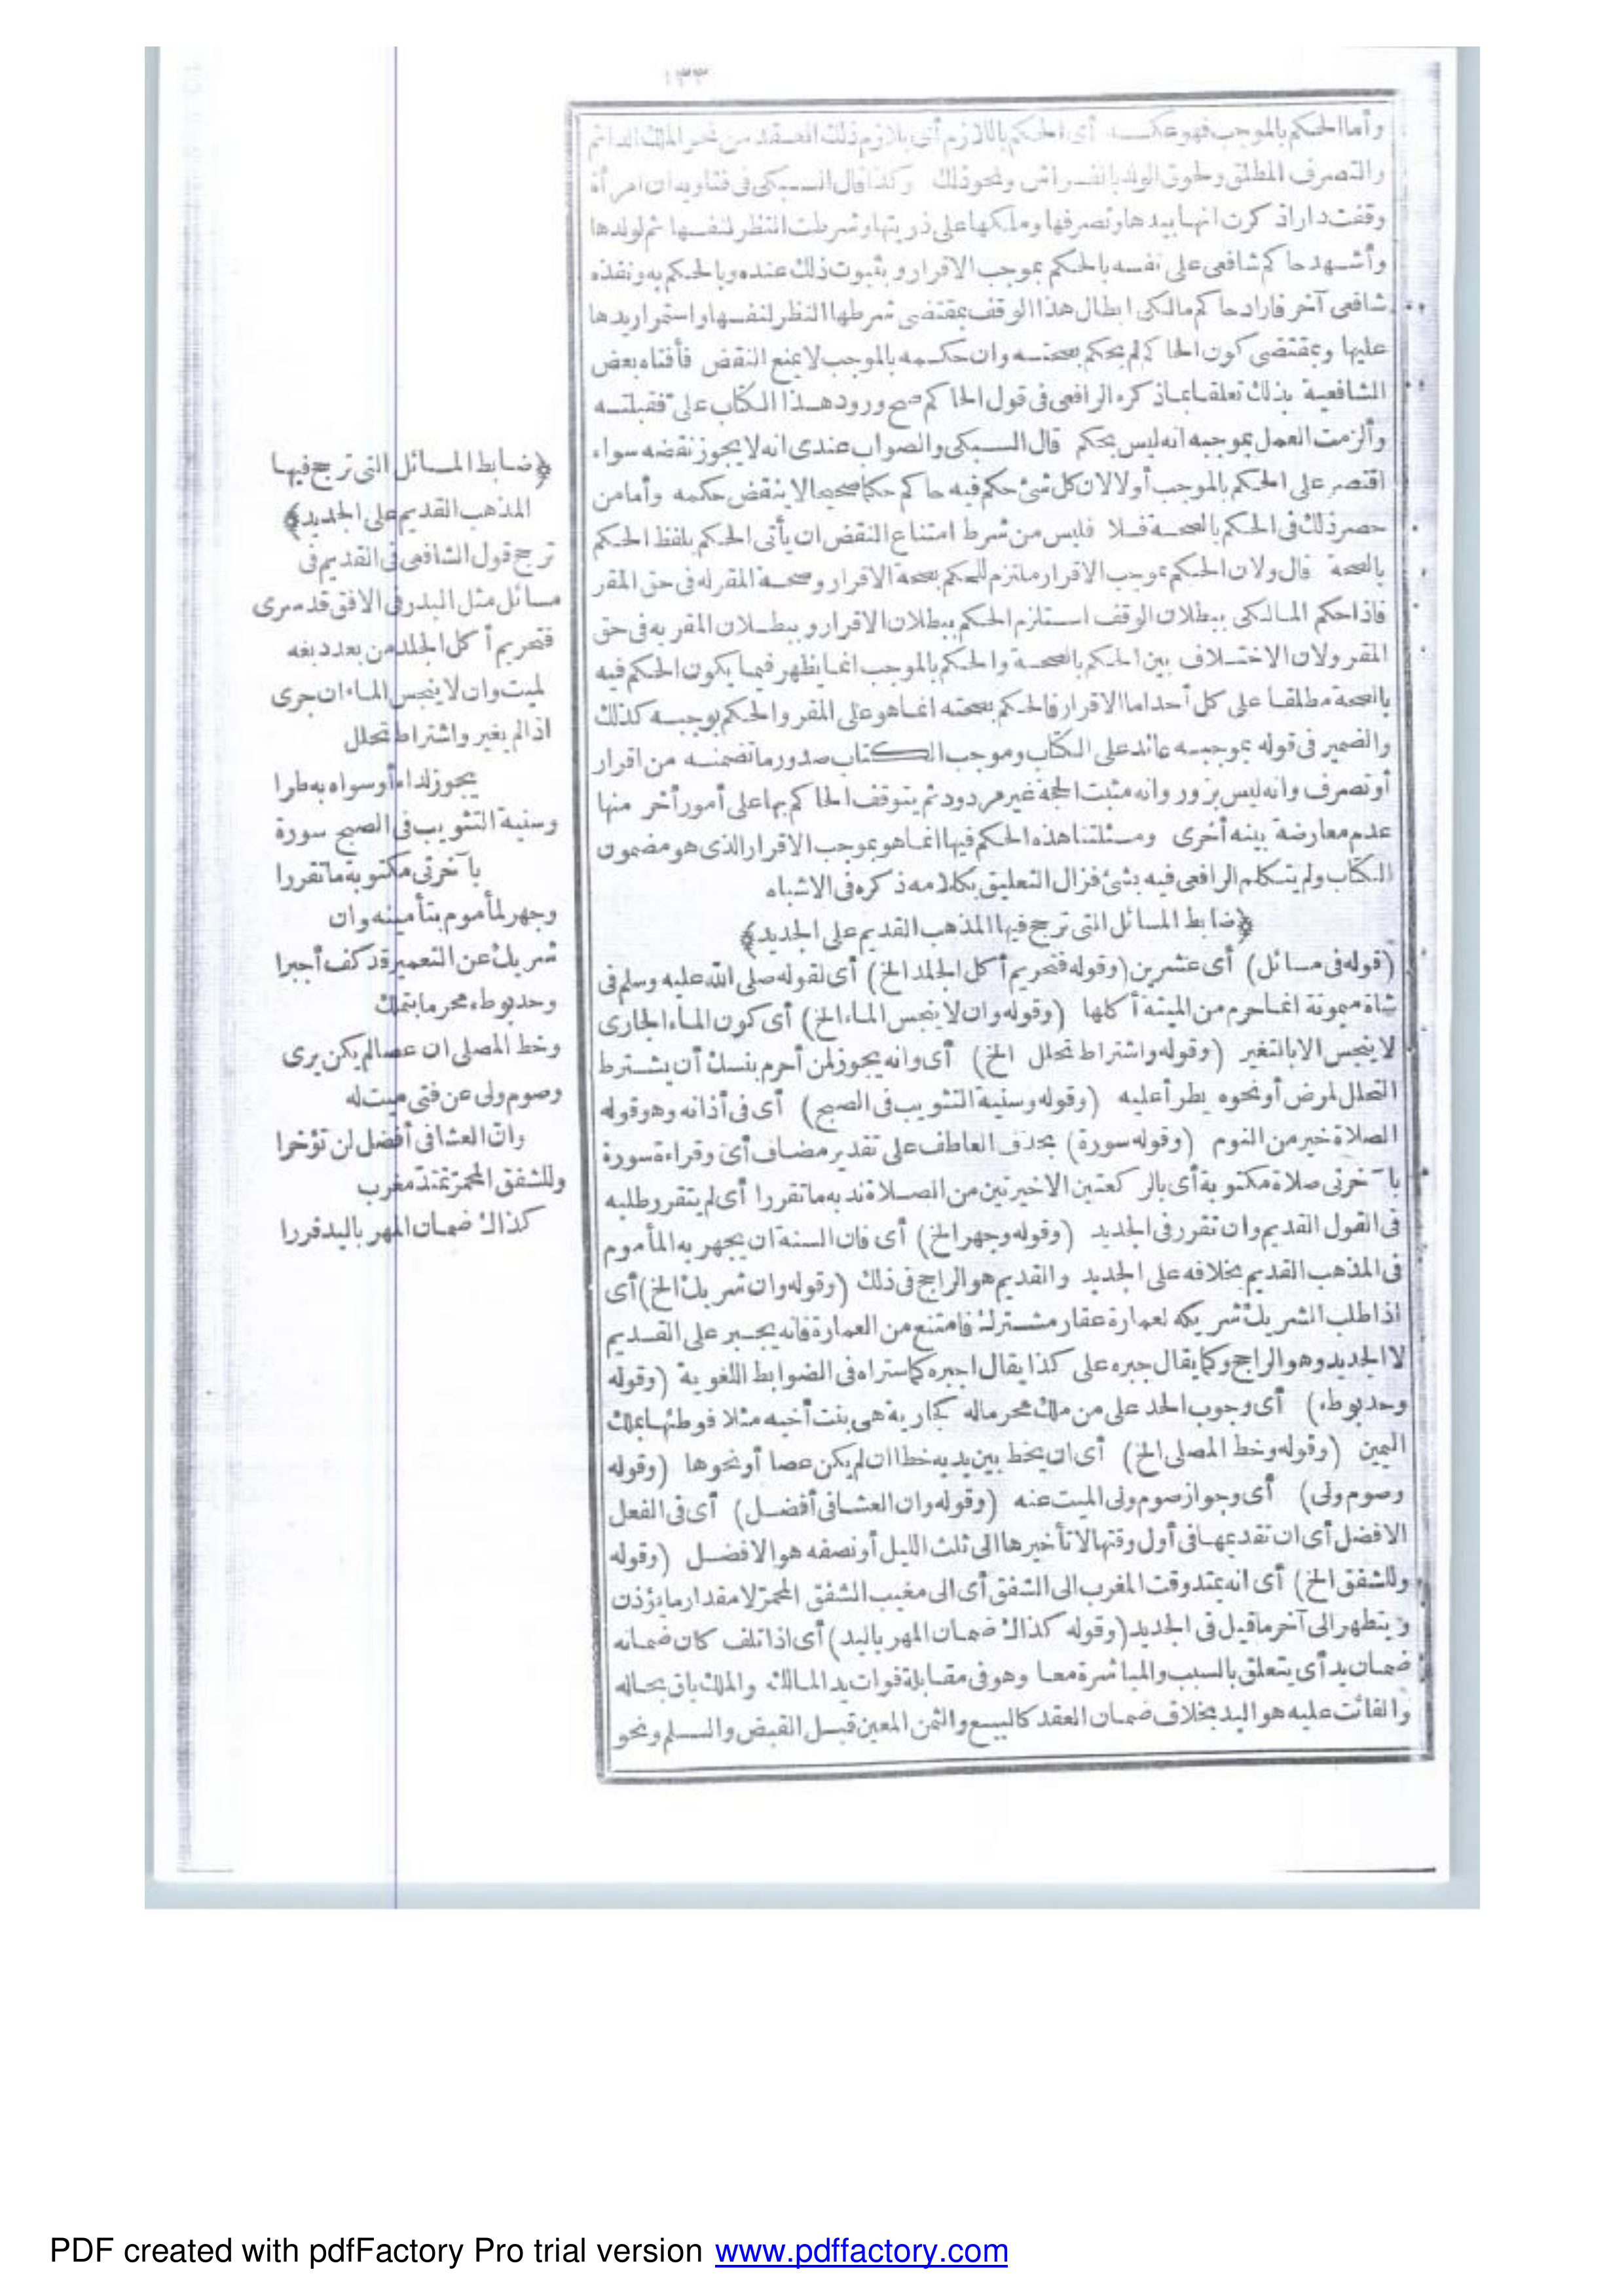 ١٣٣
وأما الحكم بالموجب فهو عكسه أى الحكم باللازم أى بلازم ذلك العقد من نحو الملك الدائم
والتصرف المطلق ولحوق الولد بالفراش ونحو ذلك وكذا قال السبكى فى فتاويه ان امرأة
وقفت دارا ذكرت انها بيدها وتصرفها وملكها على ذريتها وشرطت النظر لنفسها ثم لولدها
وأشهد حاكم شافعى على نفسه بالحكم بموجب الاقرار وبثبوت ذلك عنده وبالحكم به ونفذه
شافعى آخر فاراد حاكم مالكى ابطال هذا الوقف بمقتضى شرطها النظر لنفسها واستمرار يدها
عليها وبمقتضى كون الحاكم لم يحكم بصحته وان حكمه بالموجب لا يمنع النقض فأفتاه بعض
الشافعية بذلك تعلقا بما ذكره الرافعى فى قول الحاكم صح ورود هذا الكتاب على فقبلته
وألزمت العمل بموجبه انه ليس بحكم قال السبكى والصواب عندى انه لا يجوز نقضه سواء
اقتصر على الحكم بالموجب أو لا لان كل شئ حكم فيه حاكم حكما صحيحا لا ينقض حكمه وأما من
حصر ذلك فى الحكم بالصحة فلا فليس من شرط امتناع النقض ان يأتى الحكم بلفظ الحكم
بالصحة قال ولان الحكم بموجب الاقرار ملتزم للحكم بصحة الاقرار وصحة المقر له فى حق المقر
فاذا حكم المالكى ببطلان الوقف استلزم الحكم ببطلان الاقرار وببطلان المقر به فى حق
المقر ولان الاختلاف بين الحكم بالصحة والحكم بالموجب انما يظهر فيما يكون الحكم فيه
بالصحة مطلقا على كل أحد اما الاقرار فالحكم بصحته انما هو على المقر والحكم بوجبه كذلك
والضمير فى قوله بموجبه عائد على الكتاب وموجب الكتاب صدور ما تضمنه من اقرار
أو تصرف وانه ليس بزور وانه مثبت الحجة غير مردود ثم يتوقف الحاكم بها على أمور أخر منها
عدم معارضة بينه أخرى ومسئلتنا هذه الحكم فيها انما هو بموجب الاقرار الذى هو مضمون
الكتاب ولم يتكلم الرافعى فيه بشئ فزال التعليق بكلامه ذكره فى الاشباه
﴿ضابط المسائل التى ترجح فيها المذهب القديم على الجديد﴾
(قوله فى مسائل) أى عشرين (وقوله فتحريم أكل الجلد الخ) أى لقوله صلى الله عليه وسلم فى
شاة ميمونة انما حرم من الميتة أكلها (وقوله وان لا ينجس الماء الخ) أى كون الماء الجارى
لا ينجس الا بالتغير (وقوله واشتراط تحلل الخ) أى وانه يجوز لمن أحرم بنسك أن يشترط
التحلل لمرض أو نحوه يطرأ عليه (وقوله وسنية التثويب فى الصبح) أى فى أذانه وهو قوله
الصلاة خير من النوم (وقوله سورة) بحذف العاطف على تقدير مضاف أى وقراءة سورة
بآخرتى صلاة مكتوبة أى بالركعتين الاخيرتين من الصلاة ندبه ما تقررا أى لم يتقرر طلبه
فى القول القديم وان تقرر فى الجديد (وقوله وجهر الخ) أى فان السنة ان يجهر به المأموم
فى المذهب القديم بخلافه على الجديد والقديم هو الراجح فى ذلك (وقوله وان شريك الخ) أى
اذا طلب الشريك شريكه لعمارة عقار مشترك فامتنع من العمارة فانه يجبر على القديم
لا الجديد وهو الراجح وكما يقال جبره على كذا يقال اجبره كما ستراه فى الضوابط اللغوية (وقوله
وحد بوطء) أى وجوب الحد على من ملك محرما له كجارية هى بنت أخيه مثلا فوطئها بملك
اليمين (وقوله وخط المصلى الخ) أى ان يخط بين يديه خطا ان لم يكن عصا أو نحوها (وقوله
وصوم ولى) أى وجواز صوم ولى الميت عنه (وقوله وان العشا فى أفضل) أى فى الفعل
الافضل أى ان تقديمها فى أول وقتها لا تأخيرها الى ثلث الليل أو نصفه هو الافضل (وقوله
وللشفق الخ) أى انه يمتد وقت المغرب الى الشفق أى الى مغيب الشفق المحمر لا مقدار ما يؤذن
ويتطهر الى آخر ما قيل فى الجديد (وقوله كذاك ضمان المهر باليد) أى اذا تلف كان ضمانه
ضمان يد أى يتعلق بالسبب والمباشرة معا وهو فى مقابلة فوات يد المالك والملك باق بحاله
والفائت عليه هو اليد بخلاف ضمان العقد كالبيع والثمن المعين قبل القبض والسلم ونحو
﴿ضابط المسائل التى ترجح فيها
المذهب القديم على الجديد﴾
ترجح قول الشافعى فى القديم فى
مسائل مثل البدر فى الافق قد سرى
فتحريم أكل الجلد من بعد دبغه
لميت وان لا ينجس الماء ان جرى
اذا لم يغير واشتراط تحلل
يجوز لداء أو سواه به طرا
وسنية التثويب فى الصبح سورة
بآخرتى مكتوبة ما تقررا
وجهر لمأموم بتأمينه وان
شريك عن التعمير قد كف أجبرا
وحد بوطء محرما بتملك
وخط المصلى ان عصا لم يكن يرى
وصوم ولى عن فتى ميت له
وان العشا فى أفضل لن تؤخرا
وللشفق المحمر تمتد مغرب
كذاك ضمان المهر باليد قررا
PDF created with pdfFactory Pro trial version www.pdffactory.com